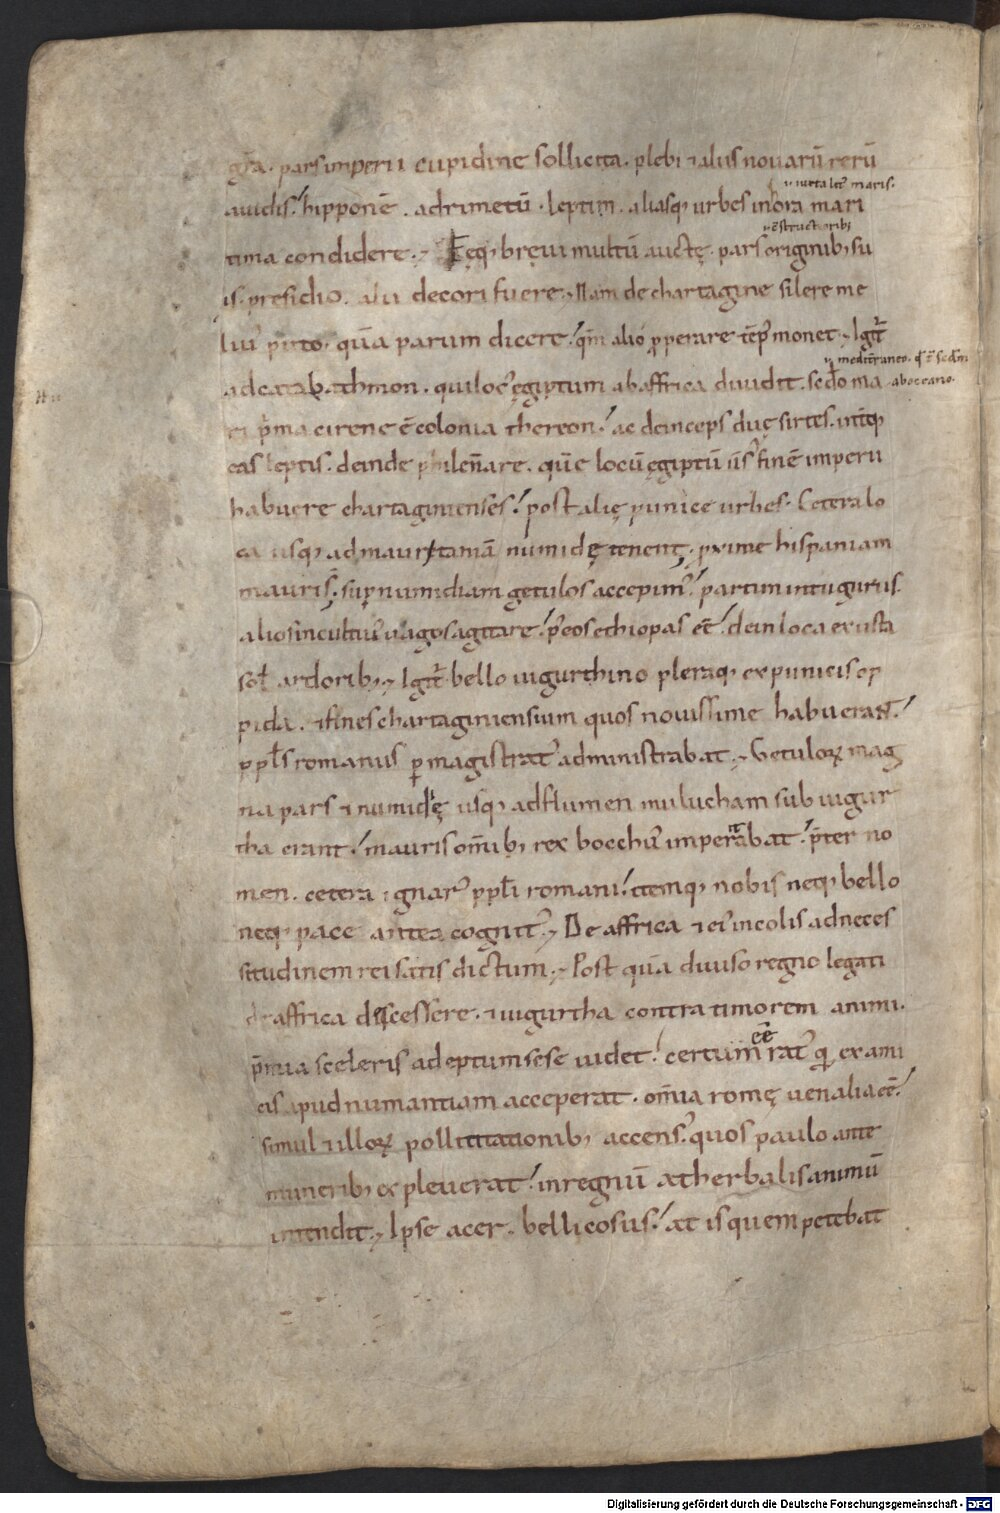 gr̄a. pars imperii cupidine sollicita. plebi ⁊ aliis nouarū rerū
.i. iuxta lit̄ maris.
auidis! hipponē. adrimetū. leptim. aliasq; urbes in ora mari
.i. c̄structorib;
tima condidere. Eęq; breui multū auctę. pars originib; su
is presidio. alii decori fuere. Nam de chartagine silere me
lius puto. quā parum dicere! qm̄ alio ꝓperare tēp̄ monet. Igit̄
.i. mediterraneo. qd̄ ē sec̄dm
ad catabathmon. qui loc᷒ ęgiptum ab affrica diuidit. sec̄do ma
ab occeano.
ri p̄ma cirene ē colonia thereon! ac deinceps duę sirtes. int̄q;
eas leptis. deinde philen̄are. quē locū ęgiptū uīs᷒ finē imperii
habuere chartaginienses! post alię punice urbes. Cetera lo
ca usq; ad mauritaniā numidę tenent. ꝓxime hispaniam
mauris. sup̄ numidiam getulos accepim᷒! partim in tuguriis.
alios incultius uagos agitare! p᷒ eos ethiopas eē! dein loca exusta
sol̄ ardorib;. Igit̄ bello iugurthino pleraq; ex punicis op
pida. ⁊ fines chartaginiensium quos nouissime habuerant!
ppl̄s romanus ꝑ magistrat᷒ administrabat. Getuloꝝ mag
na pars ⁊ numidę usq; ad flumen mulucham sub iugur
tha erant! mauris om̄ib; rex bocch᷒ imperabat! p̄ter no
men. cetera ignar᷒ ppl̄i romani! itemq; nobis neq; bello
neq; pace antea cognit᷒. De affrica ⁊ ei᷒ incolis ad neces
situdinem rei satis dictum. Post quā diuiso regno legati
de affrica discessere. ⁊ iugurtha contra timorem animi.
p̄mia sceleris adeptum sese uidet! certum
eē
rat᷒ qd̄ ex ami
cis apud numantiam acceperat. om̄ia romę uenalia eē!
simul ⁊ illoꝝ pollicitationib; accens᷒ quos paulo ante
munerib; expleuerat! in regnū atherbalis animū
intendit. Ipse acer. bellicosus! at is quem petebat
Digitalisierung gefördert durch die Deutsche Forschungsgemeinschaft - DFG